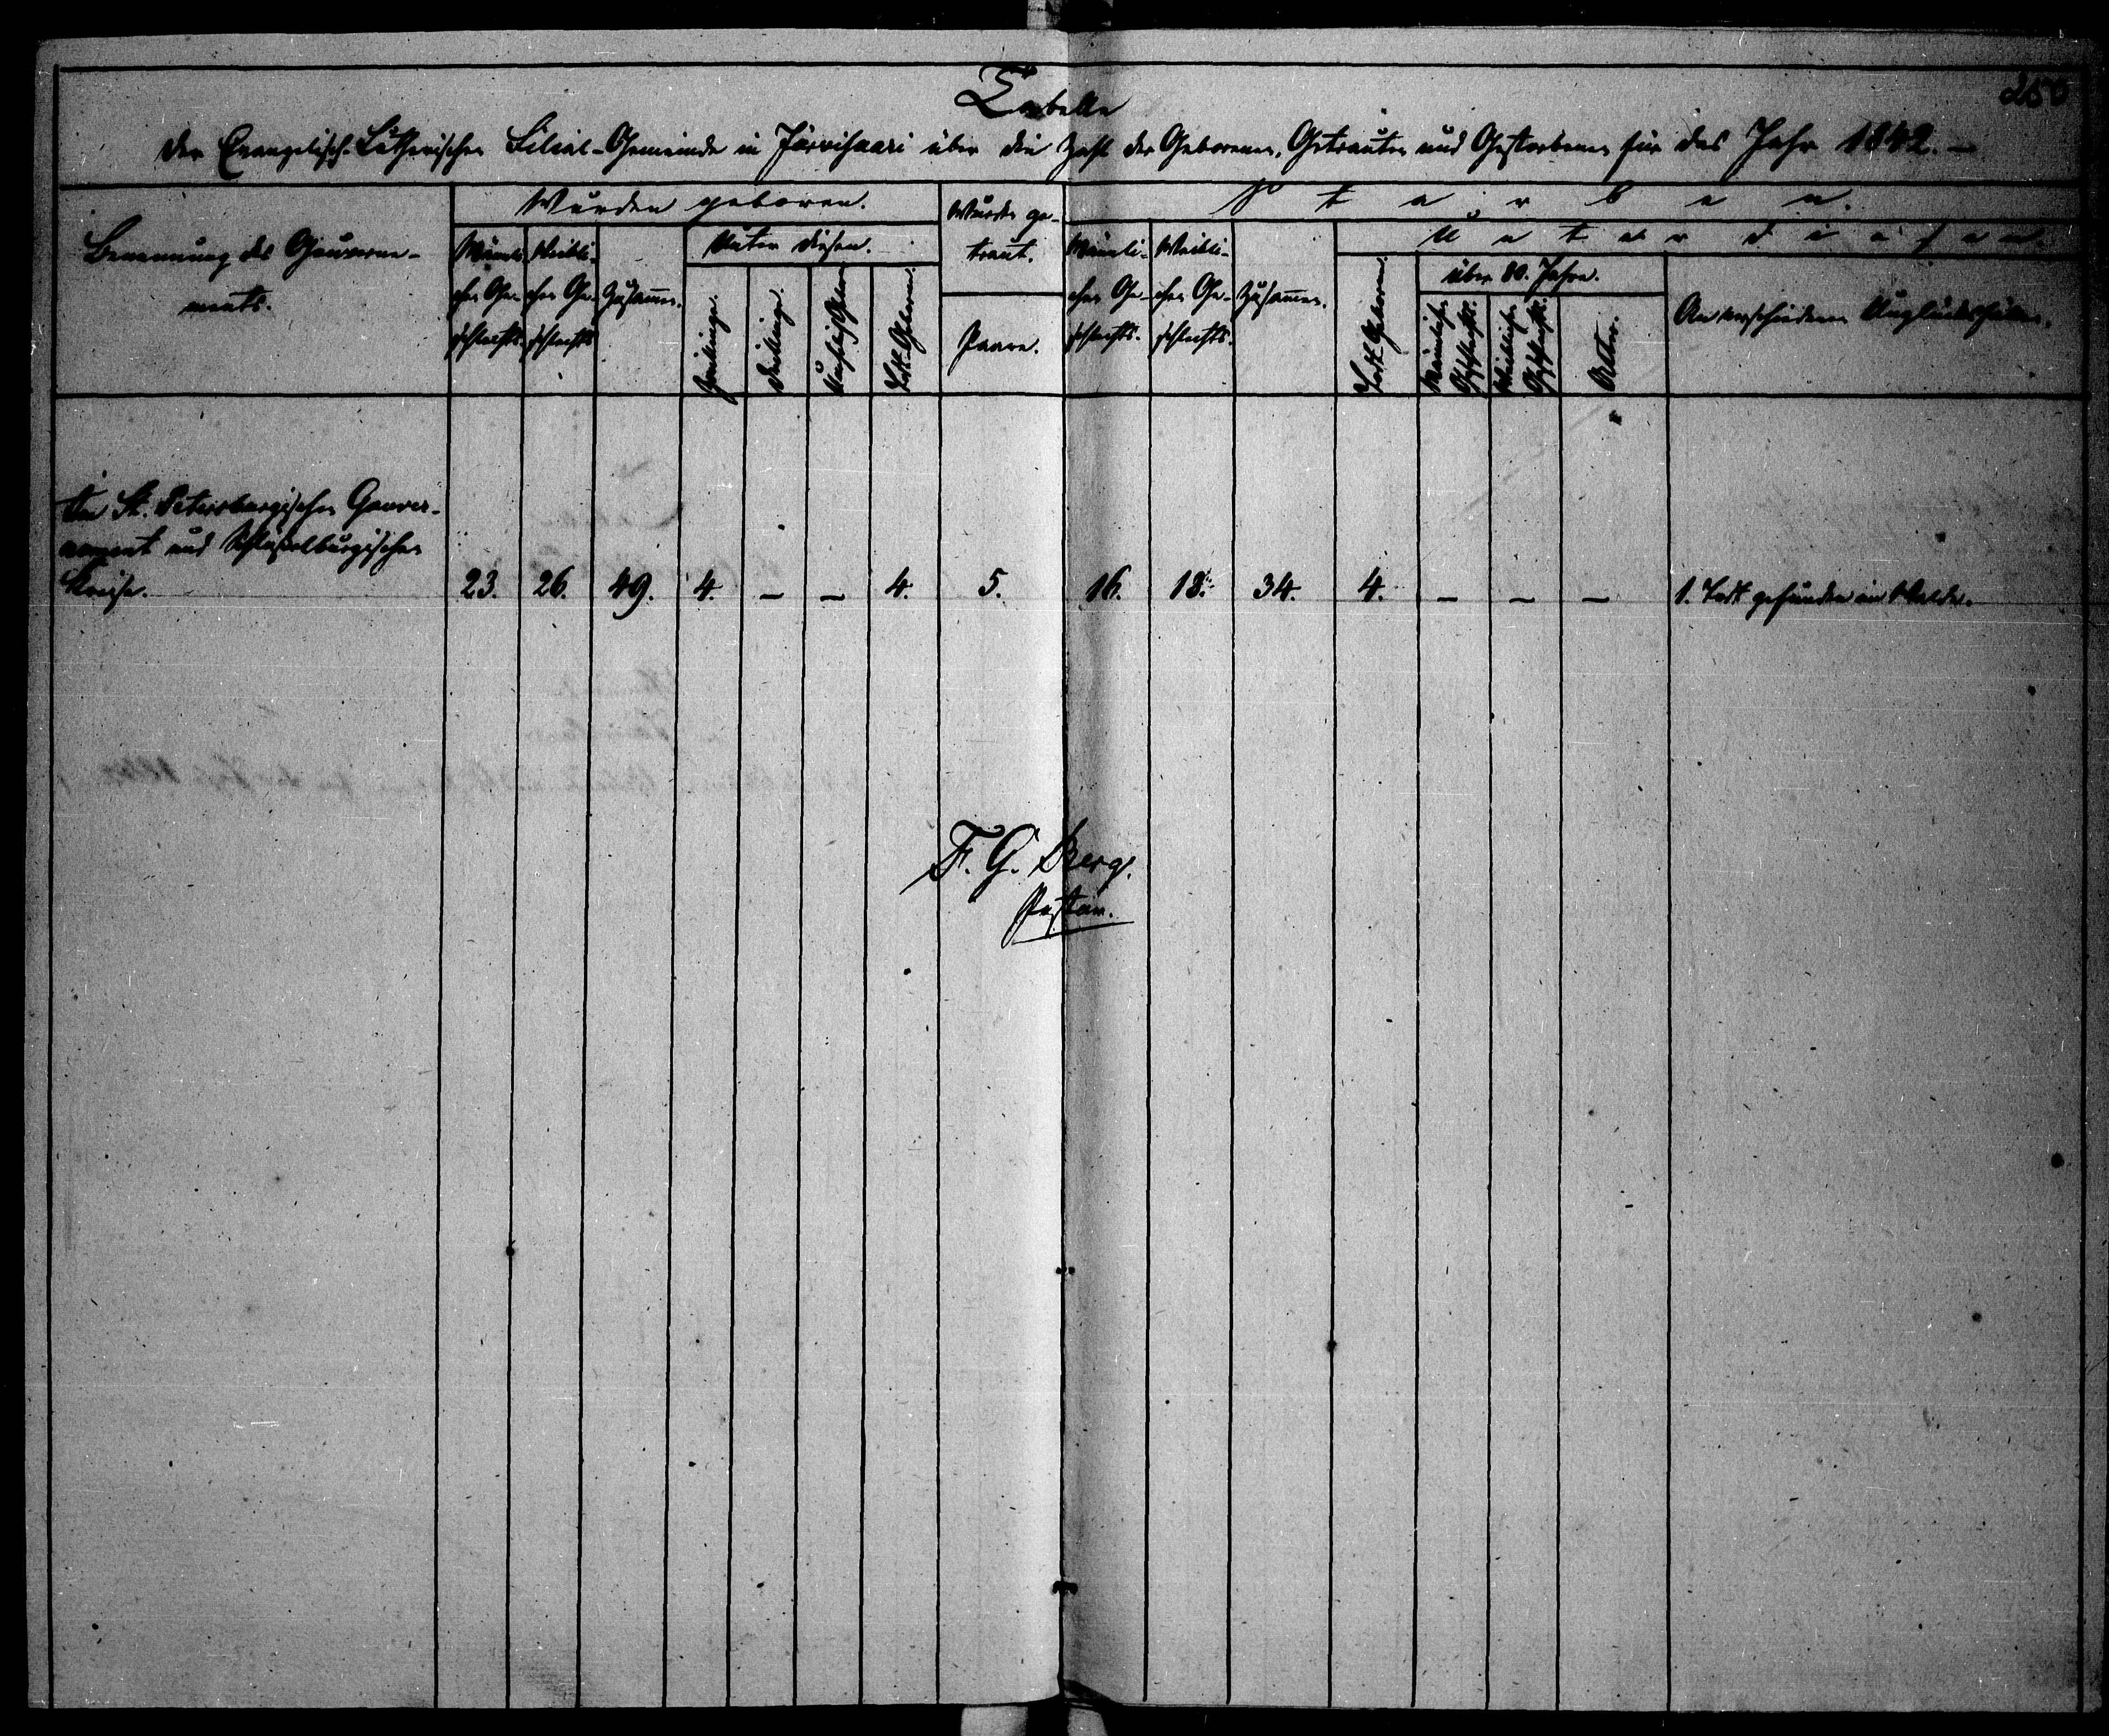 250
Tabelle
der Evangelisch-Lutherischen Filial-Gemeinde in Järvisaari über die Zahl der Geborenen, Getrauten und Gestorbenen für das Jahr 1842.-
Benennung des Gouverne-
ments.
Wurden geboren.
Männli-
chen Ge-
schlechts.
Weibli-
chen Ge-
schlechts
Zusamen.
Unter diesen.
Zwillinge.
Drillinge.
Unehelich Geboren
Todt-Geboren.
Wurde ge-
traut.
Paare.
Starben.
Männli-
chen Ge-
schlechts.
Weibli-
chen Ge-
schlechts.
Zusamen.
Unter diesen.
Todt-Geboren.
über 80. Jahre.
Männlichen
Geschlechts.
Weiblichen
Geschlechts.
Alter.
An verschiedenen Unglücksfällen.
Im St. Petersburgischen Gouver-
nement und Schlüsselburgischen
Kreise.
23. 26. 49. 4. – – 4. 5. 16. 18. 34. 4. – – – 1. Todt gefunden im Walde.
F. G. Berg.
Pastor.